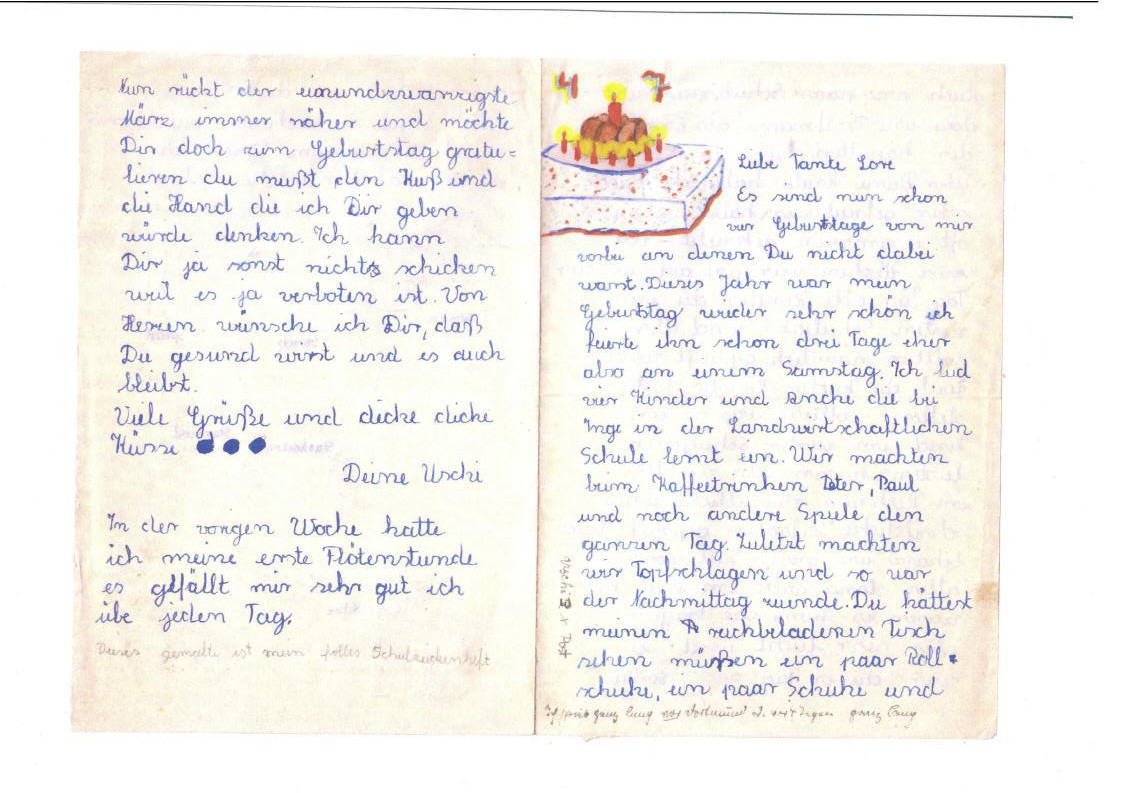 Nun rückt der einundzwanzigste
März immer näher und möchte
Dir doch zum Geburtstag gratu=
lieren du mußt den Kuß und
die Hand die ich Dir geben
würde denken. Ich kann
Dir ja sonst nichts schicken
weil es ja verboten ist. Von
Herzen wünsche ich Dir, daß
Du gesund wirst und es auch
bleibst.
Viele Grüße und dicke dicke
Küsse
Deine Uschi
In der vorigen Woche hatte
ich meine erste Flötenstunde
es gefällt mir sehr gut ich
übe jeden Tag.
Dieses gemalte ist mein Schulzeichenheft
4 7
Liebe Tante Lore
Es sind nun schon
vier Geburtstage von mir
vorbei an denen Du nicht dabei
warst. Dieses Jahr war mein
Geburtstag wieder sehr schön ich
feierte ihn schon drei Tage eher
also an einem Samstag. Ich lud
vier Kinder und Anche die bei
Inge in der Landwirtschaftlichen
Schule lernt ein. Wir machten
beim Kaffeetrinken Peter, Paul
und noch andere Spiele den
ganzen Tag. Zuletzt machten
wir Topfschlagen und so war
der Nachmittag zuende. Du hättest
meinen reichbeladenen Tisch
sehen müßen ein paar Roll=
schuhe, ein paar Schuhe und
ganz lang